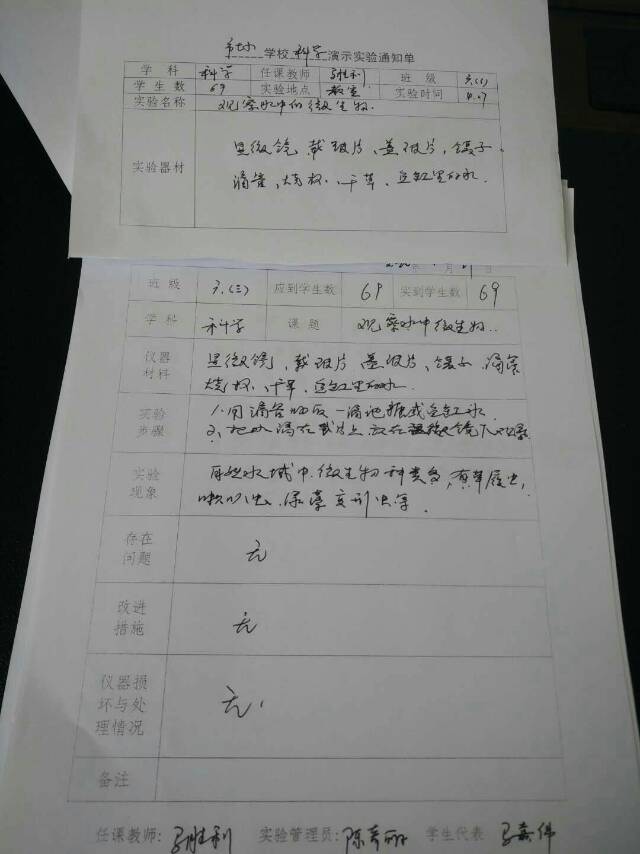 学校 科学 演示实验通知单
学科 科学 任课教师 马胜利 班级
学生数 69 实验地点 教室 实验时间
实验名称 观察水中的微生物.
实验器材 显微镜、载玻片、盖玻片、镊子、
滴管、烧杯、干草、鱼缸里的水.
班级 应到学生数 69 实到学生数 69
学科 科学 课题 观察水中微生物..
仪器材料 显微镜、载玻片 盖玻片、镊子 滴管
烧杯、干草、鱼缸里的水.
实验步骤 1.用滴管吸取一滴池塘或鱼缸水
2.把水滴在载片上放在显微镜下观察
实验现象 自然水域中微生物种类多,有草履虫,
喇叭虫、绿藻变形虫等.
存在问题 无
改进措施 无
仪器损坏与处理情况 无.
备注
任课教师: 马胜利 实验管理员: 学生代表